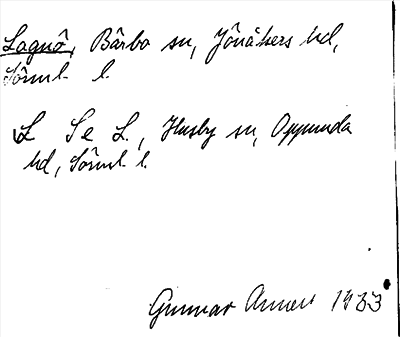 Lagnö, Bärbo sn, Jönåkers hd,
Sörml. l.
L Se L., Husby sn, Oppunda
hd, Sörml. l.
Gunnar Annell 1933